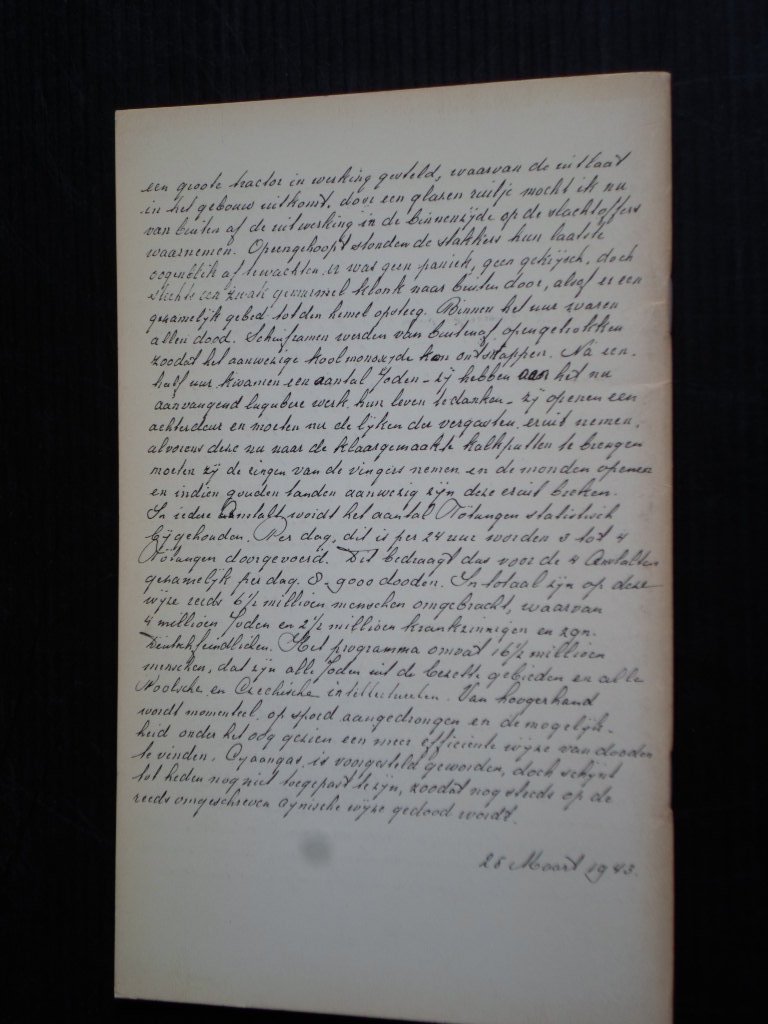 een groote tractor in werking gesteld, waarvan de uitlaat
in het gebouw uitkomt. door een glazen ruitje mocht ik nu
van buiten af de uitwerking in de binnenzijde op de slachtoffers
waarnemen. Opeengehoopt stonden de stakkers hun laatste
oogenblik af te wachten. er was geen paniek, geen gekrijsch, doch
slechts een zwak gemurmel klonk naar buiten door, alsof er een
gezamelijk gebed tot den hemel opsteeg. Binnen het uur waren
allen dood. Schuiframen werden van buitenaf opengetrokken
zoodat het aanwezige koolmonoxyde kon ontsnappen. Na een
half uur kwamen een aantal Joden - zij hebben aan het nu
aanvangend lugubere werk hun leven te danken - zij openen een
achterdeur en moeten nu de lijken der vergasten eruit nemen.
alvorens deze nu naar de klaargemaakte kalkputten te brengen
moeten zij de ringen van de vingers nemen en de monden openen
en indien gouden tanden aanwezig zijn deze eruit breken.
In iedere Anstalt wordt het aantal Tötungen statistisch
bijgehouden. Per dag, dit is per 24 uur worden 3 tot 4
Tötungen doorgevoerd. Dit bedraagt dus voor de 4 Anstalten
gezamelijk per dag 8-9000 dooden. In totaal zijn op deze
wijze reeds 6½ millioen menschen omgebracht, waarvan
4 millioen Joden en 2½ millioen krankzinnigen en zgn.
Deutschfeindlichen. Het programma omvat 16½ millioen
menschen, dat zijn alle Joden uit de bezette gebieden en alle
Poolsche en Czechische intellectueelen. Van hoogerhand
wordt momenteel op spoed aangedrongen en de mogelijk-
heid onder het oog gezien een meer efficiente wijze van dooden
te vinden. Cyaangas is voorgesteld geworden, doch schijnt
tot heden nog niet toegepast te zijn, zoodat nog steeds op de
reeds omgeschreven cynische wijze gedood wordt.
25 Maart 1943.